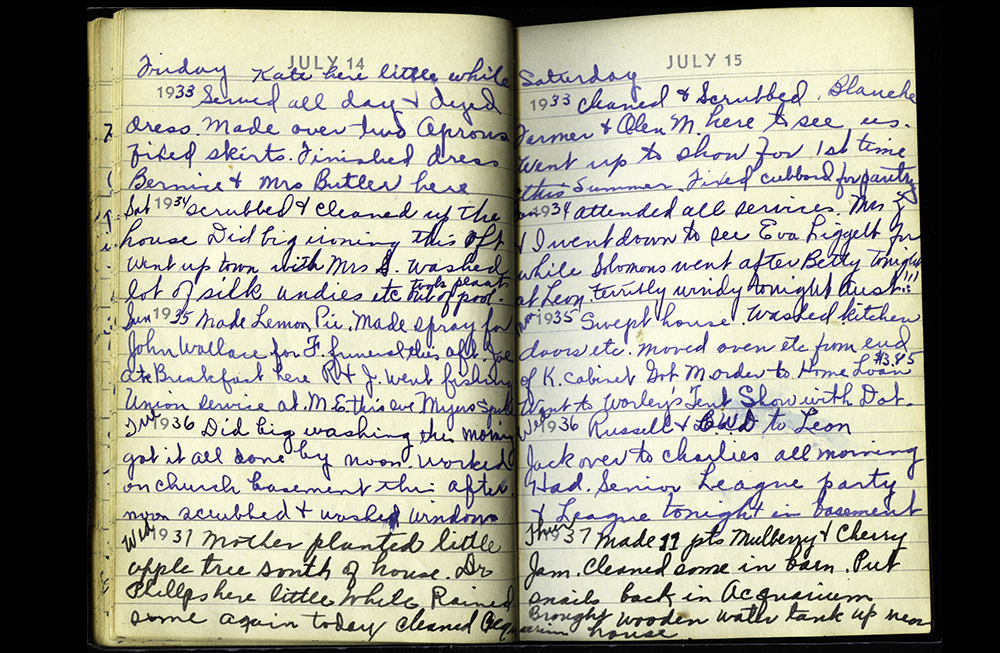 JULY 14
Friday Kate here little while
1933 Sewed all day & dyed
dress. Made over two Aprons
fixed skirts. Finished dress
Bernice & Mrs Butler here
Sat 1934 scrubbed & cleaned up the
house Did big ironing this aft
went up town with Mrs S. washed
lot of silk undies etc took plants
out of pool.
Sun 1935 Made Lemon Pie. Made spray for
John Wallace for F. funeral this aft. Joe
ate Breakfast here R & J. went fishing
Union service at M.E. this eve Myers
1936 Did big washing this morning
got it all done by noon. worked
on church basement this after
noon scrubbed & washed windows
Wed 1937 Mother planted little
apple tree south of house. Dr
Phillps here little while Rained
some again today cleaned Acquarium
JULY 15
Saturday
1933 cleaned & Scrubbed. Blanche
Farmer & Olen M. here to see us.
Went up to show for 1st time
this Summer. Fixed cubboard for pantry
Sun 1934 attended all services. Mrs
& I went down to see Eva Liggett for
while Solomons went after Betty tonight
at Leon. terribly windy tonight dust!!!
Mon 1935 Swept house. Washed kitchen
doors etc. moved oven etc from end
of K. Cabinet Got M. order to Home Loan $3.85
Went to Worley's Tent Show with Dot.
We 1936 Russell & L.W.D to Leon
Jack over to charlies all morning
Had Senior League party
& League tonight in basement
Thurs 1937 Made 11 pts Mulberry & Cherry
Jam. Cleaned some in barn. Put
snails back in Acquarium
Brought wooden water tank up near
house.